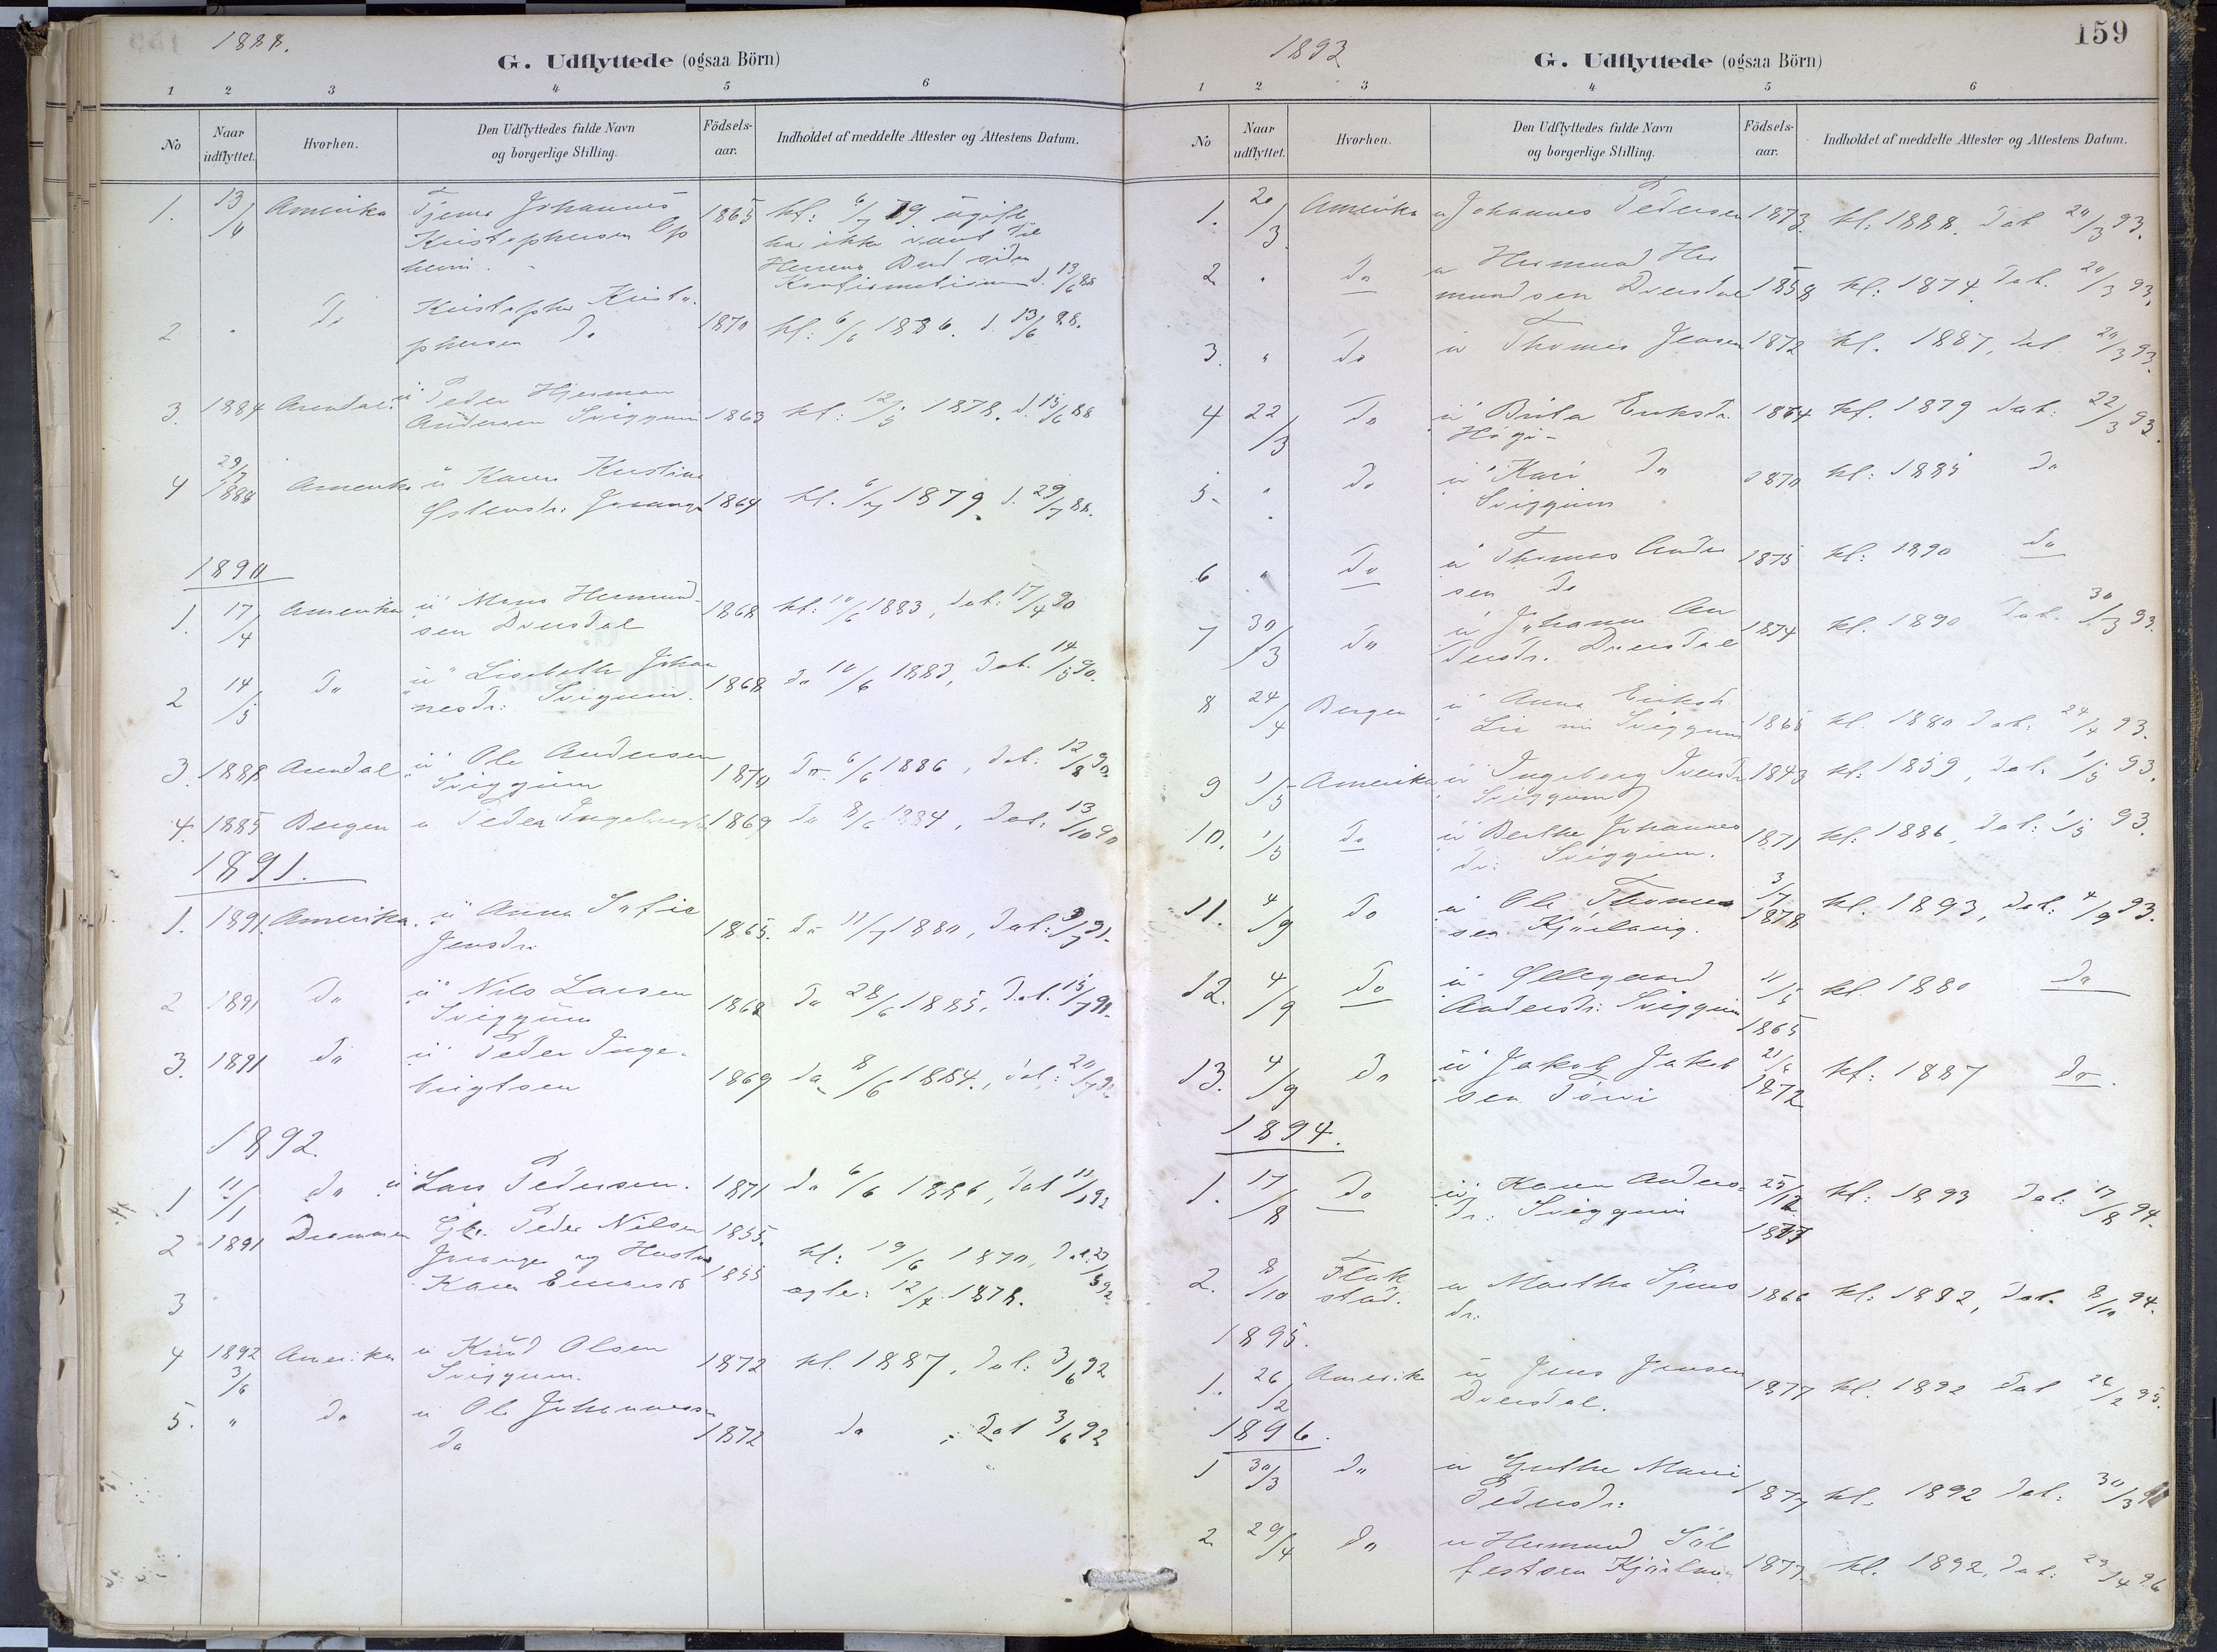 1888.
G. Udflyttede (ogsaa Börn)
1 2 3 4 5 6
No
Naar udflyttet.
Hvorhen.
Den Udflyttedes fulde Navn og borgerlige Stilling.
Födsels-aar.
Indholdet af meddelte Attester og Attestens Datum.
1. 13/6 Amerika Johannes 1865 kf: 6/7 79 ugift
Kristophersen har ikke været til
Herrens Bord siden
Konfirmationen d. 13/6 88
2 " Do Kristopher Kristo-
phersen Do 1870 kf: 6/6 1886. d. 13/6 88.
3. 1884 Arendal u Peder Hjerman
Andersen Sviggum 1863 kf: 12/5 1878. d. 15/6 88
4 29/7 1888 Amerika u Karen Kristine
1864 kf. 6/7 1879. d. 29/7 88.
1890
1. 17/4 Amerika u Mons Hermund-
sen Dversdal 1868 kf: 10/6 1883, dat: 17/4 90
2 14/5 Do u Lisebeth Johan
nesdr: Svigum. 1868 do 10/6 1883, dat. 14/5 90.
3. 1888 Arendal u Ole Andersen
Sviggum 1870 do 6/6 1886, dat: 12/8 90.
4. 1885 Bergen u Peder 1869 do 8/6 1884, dat: 13/10 90
1891.
1. 1891. Amerika. u Anna Sofie
Jensdr: 1865. do 11/7 1880, dat:
2 1891 Do u Nils Larsen
Sviggum 1868 do 28/6 1885, dat. 15/7 91.
3. 1891 Do u Peder Inge-
brigtsen 1869 do 8/6 1884., dat: 20/7 91
1892.
1 11/1 do u Lars Pedersen. 1871 do 6/6 1886, dat 11/1 92
2 1891 Drammen Gbr. Peder Nilsen 1855.
og Hustru 1855 kf: 19/6 1870, dat.
3 Karen 12/4 1878.
4 1892 3/6 Amerika u Knud Olsen
Sviggum. 1872 kf. 1887, dat: 3/6 92
5. " do u Ole Johannessen
do 1872 do ; dat 3/6 92
159
1893
G. Udflyttede (ogsaa Börn)
1 2 3 4 5 6
No
Naar udflyttet.
Hvorhen.
Den Udflyttedes fulde Navn og borgerlige Stilling.
Födsels-aar.
Indholdet af meddelte Attester og Attestens Datum.
1. 20/3 Amerika u Johannes Pedersen 1873. kf: 1888. dat 20/3 93.
2 " Do u Hermund Her
mundsen Dversdal 1858 kf: 1874. dat. 20/3 93.
3. " Do u Thomas Jensen 1872 kf. 1887, dat 20/3 93.
4 22/3 Do u Brita Eriksdr. 1864 kf. 1879 dat: 22/3 93.
5- " Do u Kari do 1870 kf: 1885 do
Sviggum
6 " Do u Thomas Ander
sen do 1875 kf: 1890 do
7 30/3 Do u Johanne An
dersdr. Dversdal 1874 kf. 1890 dat. 30/3 93.
8 24/4 Bergen u Anna Eriksdr
Sviggum 1865 kf. 1880 dat: 24/4 93.
9 1/5 Amerika u Ingeborg Iversdr 1843 kf: 1859, dat. 1/5 93.
Sviggum
10. 1/5 Do u Berthe Johannes
dr: Sviggum. 1871 kf: 1886, dat: 1/5 93.
11. 4/9 Do u Ole Thomas
sen Kjørlaug. 3/7 1878 kf. 1893, dat: 4/9 93.
12. 4/9 Do u Øllegaard
Andersdr: Sviggum 11/5 1865 kf. 1880 do
13. 4/9 Do u Jakob Jakob
sen 21/6 1872 kf: 1887 do.
1894.
1. 17/8 Do u Karen Anders-
dr: Sviggum 25/12 kf: 1893 dat: 17/8 94.
2. 8/10 Flak
stad. u Martha Sjurs
dr: 1866 kf: 1882, dat. 8/10 94.
1895.
1. 26/2 Amerika u Jens Jensen
Dversdal. 1877 kf. 1892 dat 26/2 95.
1896.
1 30/3 Do u Grethe Marie
Pedersdr: 1877 kf. 1892 dat: 30/3
2 29/4 Do u Hermund Sjul
festsen Kjørlaug 1877. kf. 1892, dat: 29/4 96